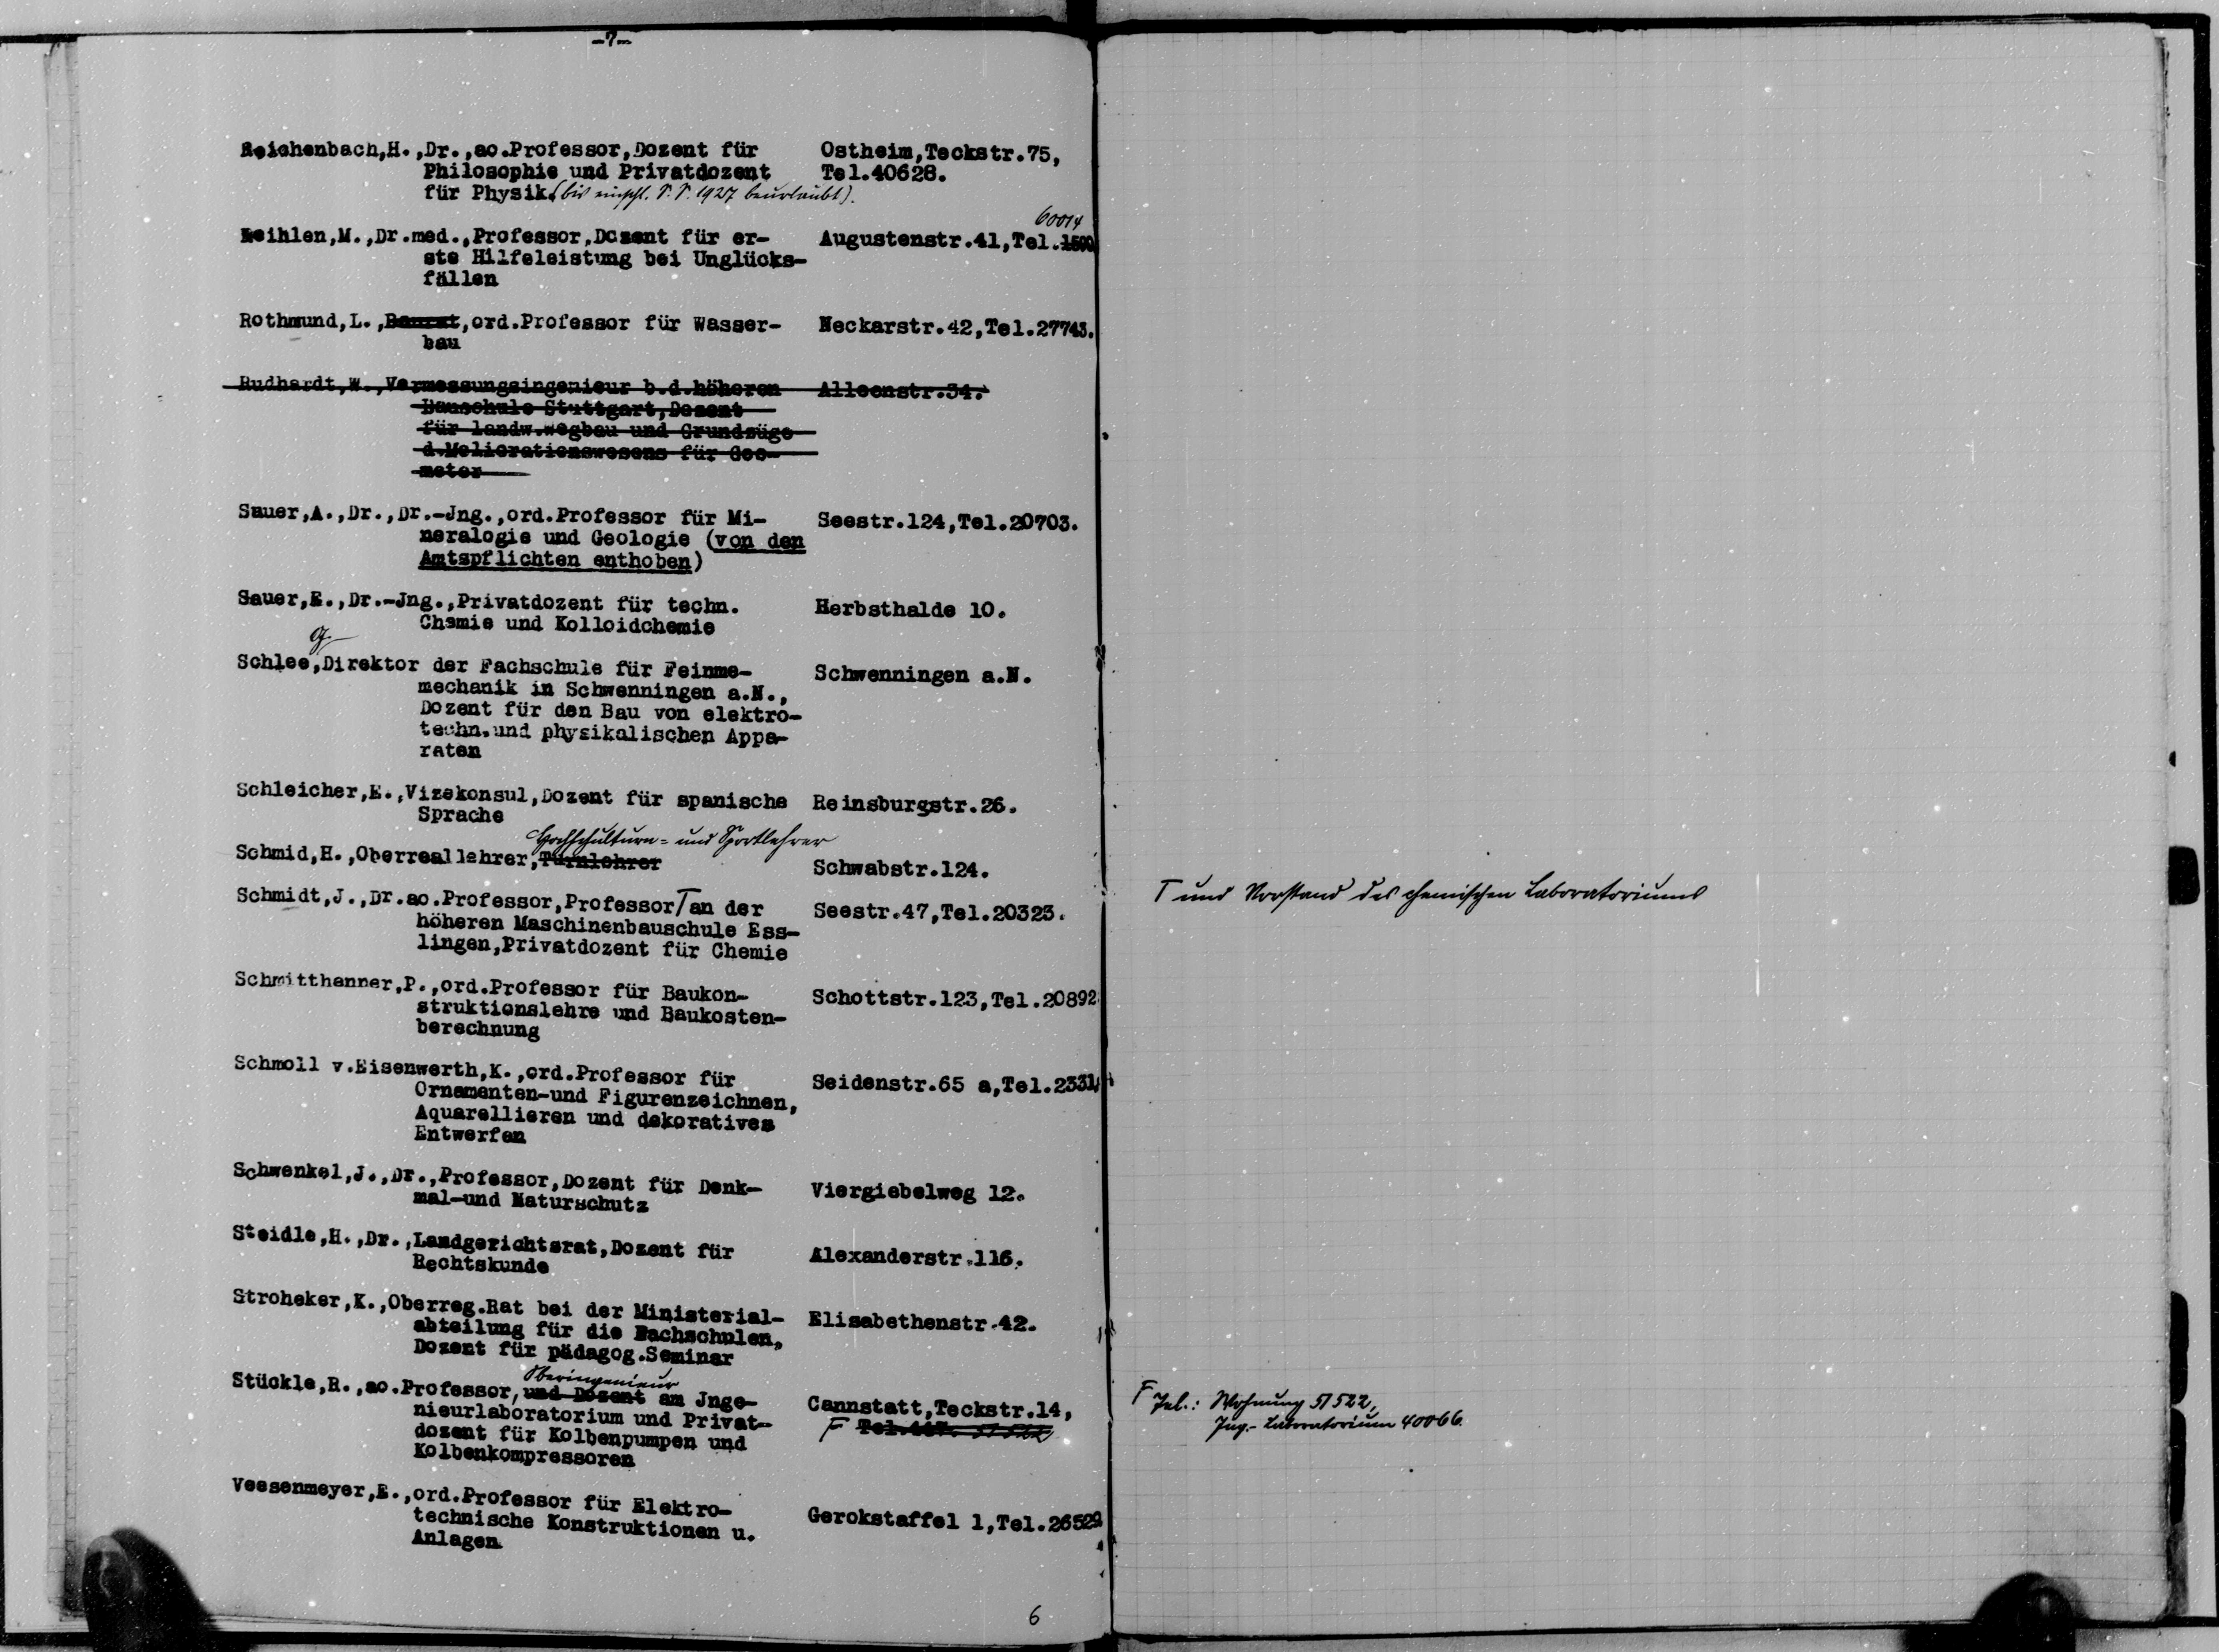 -7-
Reichenbach,H.,Dr.,ao.Professor,Dozent für
Philosophie und Privatdozent
für Physik.(bis einschl. S.S. 1927 beurlaubt).
Ostheim,Teckstr.75,
Tel.40628.
Reihlen,M.,Dr.med.,Professor,Dozent für er-
ste Hilfeleistung bei Unglücks-
fällen
60014
Augustenstr.41,Tel.1500
Rothmund,L.,Baurat,ord.Professor für Wasser-
bau
Neckarstr.42,Tel.27743.
Rudhardt,W.,Vermessungsingenieur b.d.höheren
Bauschule Stuttgart,Dozent
für landw.Wegbau und Grundzüge
d.Meliorationswesens für Geo-
meter
Alleenstr.34.
Sauer,A.,Dr.,Dr.-Jng.,ord.Professor für Mi-
neralogie und Geologie (von den
Amtspflichten enthoben)
Seestr.124,Tel.20703.
Sauer,E.,Dr.-Jng.,Privatdozent für techn.
Chemie und Kolloidchemie
Herbsthalde 10.
Schlee,Direktor der Fachschule für Feinme-
mechanik in Schwenningen a.N.,
Dozent für den Bau von elektro-
techn.und physikalischen Appa-
raten
Schwenningen a.N.
Schleicher,E.,Vizekonsul,Dozent für spanische
Sprache
Reinsburgstr.26.
Hochschulturn- und Sportlehrer
Schmid,H.,Oberreallehrer,Turnlehrer
Schwabstr.124.
Schmidt,J.,Dr.ao.Professor,Professor⌈an der
höheren Maschinenbauschule Ess-
lingen,Privatdozent für Chemie
Seestr.47,Tel.20323.
Schmitthenner,P.,ord.Professor für Baukon-
struktionslehre und Baukosten-
berechnung
Schottstr.123,Tel.20892.
Schmoll v.Eisenwerth,K.,ord.Professor für
Ornamenten-und Figurenzeichnen,
Aquarellieren und dekoratives
Entwerfen
Seidenstr.65 a,Tel.2331
Schwenkel,J.,Dr.,Professor,Dozent für Denk-
mal-und Naturschutz
Viergiebelweg 12.
Steidle,H.,Dr.,Landgerichtsrat,Dozent für
Rechtskunde
Alexanderstr.116.
Stroheker,K.,Oberreg.Rat bei der Ministerial-
abteilung für die Fachschulen,
Dozent für pädagog.Seminar
Elisabethenstr.42.
Oberingenieur
Stückle,R.,ao.Professor,und Dozent am Jnge-
nieurlaboratorium und Privat-
dozent für Kolbenpumpen und
Kolbenkompressoren
Cannstatt,Teckstr.14,
F Tel. 51522
Veesenmeyer,E.,ord.Professor für Elektro-
technische Konstruktionen u.
Anlagen
Gerokstaffel 1,Tel.26529
6
⌈ und Vorstand des chemischen Laboratoriums
F Tel.: Wohnung 51522,
Ing.-Laboratorium 40066.